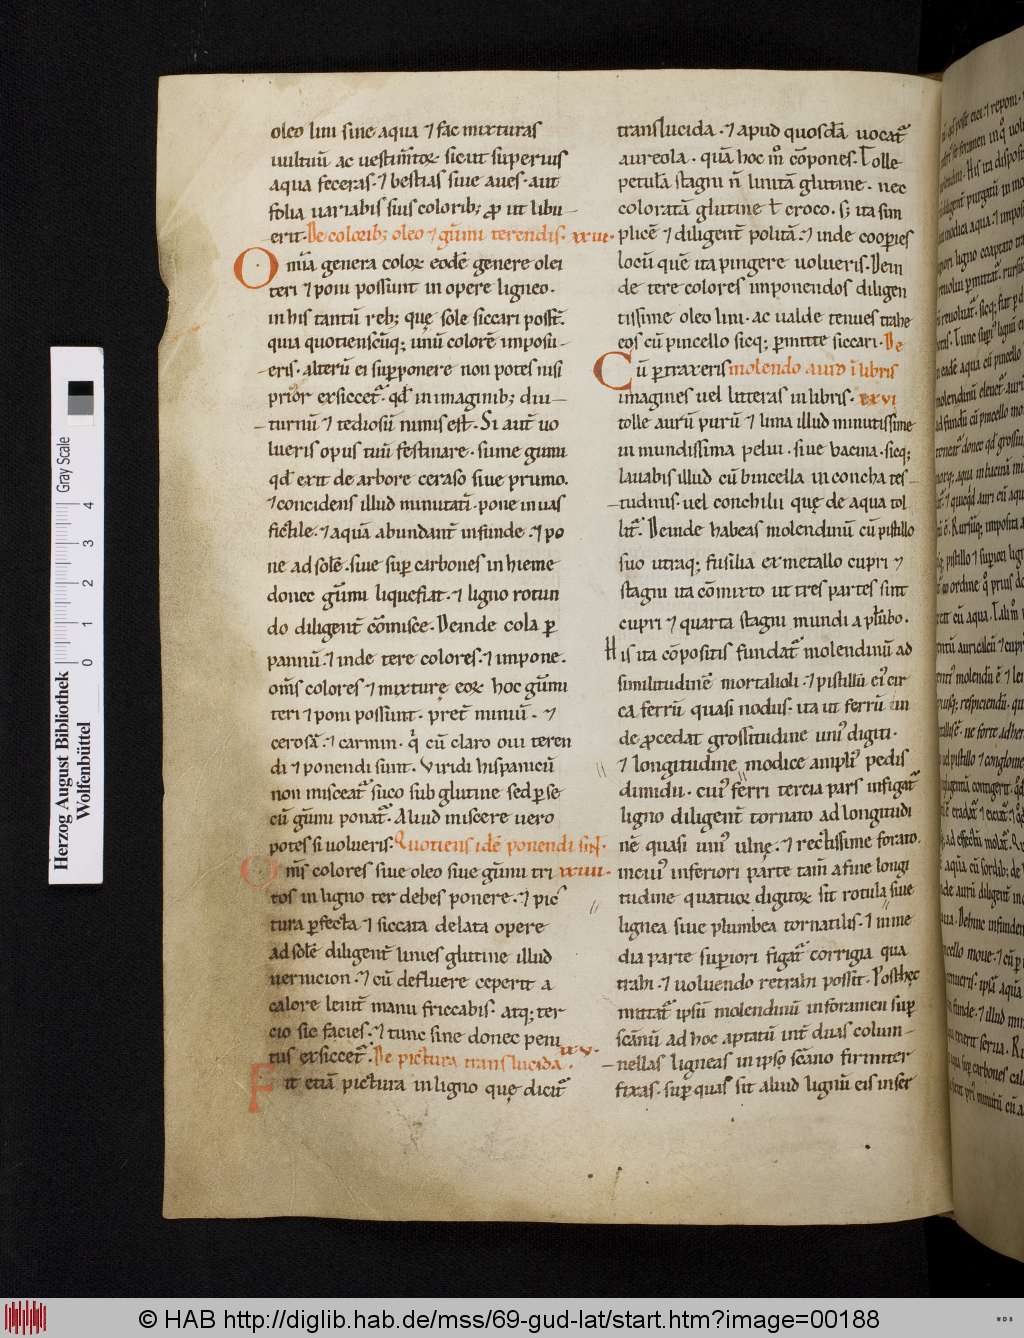 oleo lini sine aqua ⁊ fac mixturas
uultuū ac uestim̄toꝝ sicut superius
aqua feceras. ⁊ bestias siue aues. aut
folia uariabis suis colorib; ꝓ ut libu
erit. De colorib; oleo ⁊ gūmi terendis. xxiii.
Om̄ia genera coloꝝ eodē genere olei
teri ⁊ poni possunt in opere ligneo.
in his tantū reb; quę sole siccari poss̄t.
quia quotienscūq; unū colorē imposu
eris. alterū ei suꝑponere non potes nisi
prior exsiccet᷑. qd̄ in imaginib; diu
turnū ⁊ tediosū nimis est̄. Si aut̄ uo
lueris opus tuū festinare. sume gumi
qd̄ exit de arbore ceraso siue pruno.
⁊ concidens illud minutati. pone in uas
fictile. ⁊ aquā abundant̄ infunde. ⁊ po
ne ad solē. siue suꝑ carbones in hieme
donec gūmi liquefiat. ⁊ ligno rotun
do diligent̄ cōmisce. Deinde cola ꝑ
pannū. ⁊ inde tere colores. ⁊ impone.
Om̄s colores ⁊ mixturę eoꝝ hoc gūmi
teri ⁊ poni possunt. p̄ret̄ miniū. ⁊
cerosā. ⁊ carmin. q̇ cū claro oui teren
di ⁊ ponendi sunt. Viridi hispanicū
non misceat᷑ suco sub glutine sed ꝑ se
cū gūmi ponat᷑. Aliud miscere uero
potes si uolueris. Quotiens idē ponendi sin̄t.
Om̄s colores siue oleo siue gūmi tri xxiiii.
tos in ligno ter debes ponere. ⁊ pic̄
tura ꝑfecta ⁊ siccata delata opere
ad solē diligent̄ linies glutine illud
uernicion. ⁊ cū defluere ceperit a
calore lenit̄ manu fricabis. atq; ter
cio sic facies. ⁊ tunc sine donec peni
tus exsiccet᷑. De pictura translucida. xxv.
Fit etiā pictura in ligno quę dicit᷑
translucida. ⁊ apud quosdā uocat᷑
aureola. quā hoc m̊ cōpones. Tolle
petulā stagni n̄ linitā glutine. nec
coloratā glutine ł croco. s; ita sim
plicē ⁊ diligent̄ politā. ⁊ inde cooꝑies
locū quē ita pingere uolueris. Dein
de tere colores imponendos diligen
tissime oleo lini. ac ualde tenues trahe
eos cū pincello sicq; ꝑmitte siccari. De
Cū ꝑtraxeris molendo auro ī libris
imagines uel litteras in libris. xxvi
tolle aurū purū ⁊ lima illud minutissime
in mundissima pelui. siue bacina. sicq;
lauabis illud cū bincella in concha tes
tudinis. uel conchilii quę de aqua tol
lit᷑. Deinde habeas molendinū cū pistillo
suo utraq; fusilia ex metallo cupri ⁊
stagni ita cōmixto ut tres partes sint
cupri ⁊ quarta stagni mundi a plūbo.
His ita cōpositis fundat᷑ molendinū ad
similitudinē mortarioli. ⁊ pistillū ei᷒ cir
ca ferrū quasi nodus. ita ut ferrū in
de ꝓcedat grossitudine uni᷒ digiti.
⁊ longitudine modice ampli᷒ pedis
dimidii. cui᷒ ferri tercia pars infigat᷑
ligno diligent̄ tornato ad longitudi
nē quasi uni᷒ ulnę. ⁊ rectissime forato.
in cui᷒ inferiori parte tam̄ a fine longi
tudine quatuor digitoꝝ sit rotula siue
lignea siue plumbea tornatilis. ⁊ in me
dia parte suꝑiori figat᷑ corrigia qua
trahi. ⁊ uoluendo retrahi possit. Posthęc
mittat᷑ ipsū molendinū in foramen suꝑ
scānū ad hoc aptatū int̄ duas colum
nellas ligneas in ipso scāno firmiter
fixas. suꝑ quas sit aliud lignū eis inser
Herzog August Bibliothek
Wolfenbüttel
Gray Scale
0 1 2 3 4
© HAB http://diglib.hab.de/mss/69-gud-lat/start.htm?image=00188